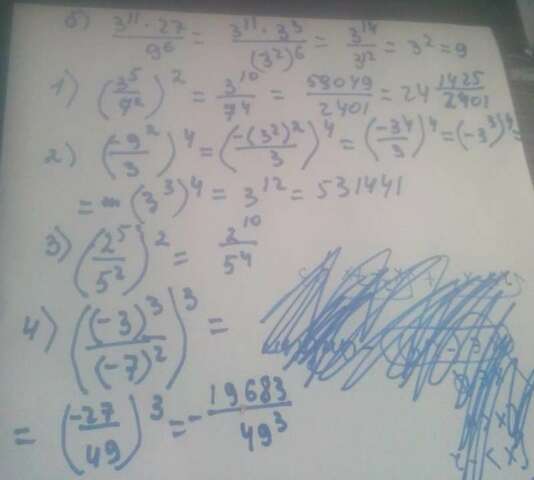 б) \frac{3^{11} \cdot 27}{9^6} = \frac{3^{11} \cdot 3^3}{(3^2)^6} = \frac{3^{14}}{3^{12}} = 3^2 = 9
1) (\frac{3^5}{7^2})^2 = \frac{3^{10}}{7^4} = \frac{59049}{2401} = 24 \frac{1425}{2401}
2) (\frac{-9^2}{3})^4 = (\frac{-(3^2)^2}{3})^4 = (\frac{-3^4}{3})^4 = (-3^3)^4 =
= (3^3)^4 = 3^{12} = 531441
3) (\frac{2^5}{5^2})^2 = \frac{2^{10}}{5^4}
4) (\frac{(-3)^3}{(-7)^2})^3 =
= (\frac{-27}{49})^3 = - \frac{19683}{49^3}